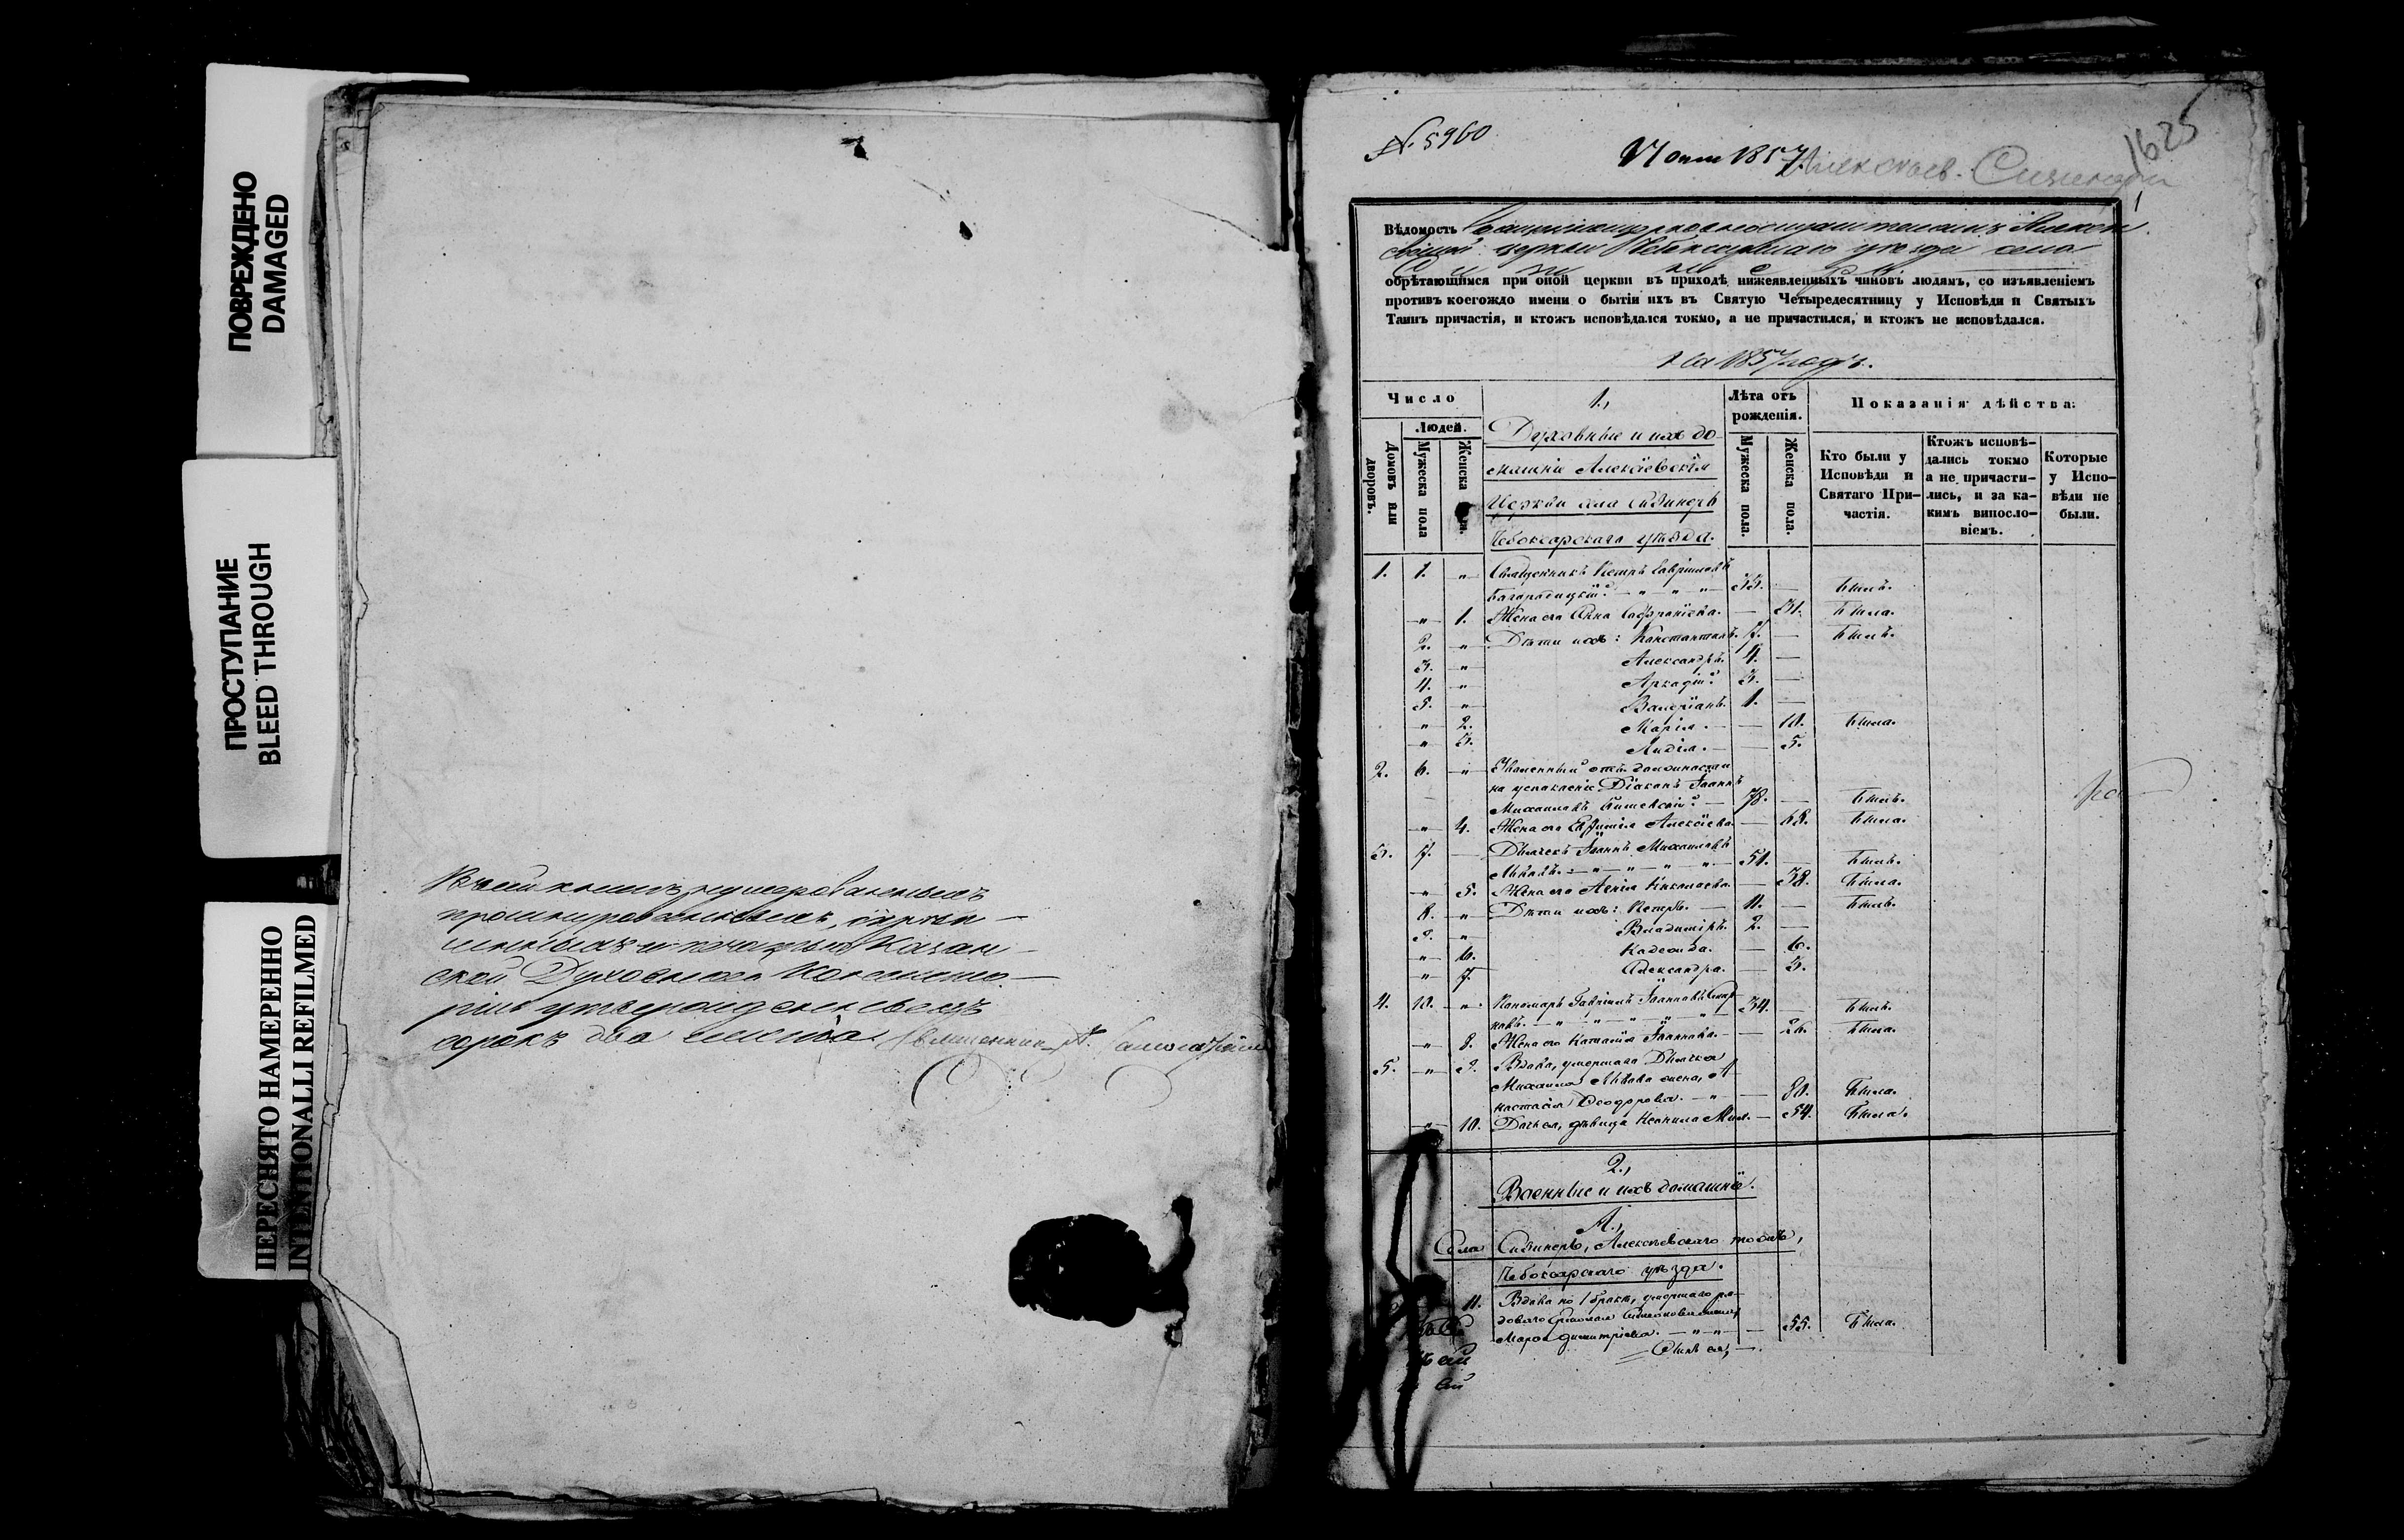 ПОВРЕЖДЕНО
DAMAGED
ПРОСТУПАНИЕ
BLEED THROUGH
ПЕРЕСНЯТО НАМЕРЕННО
INTENTIONALLI REFILMED
Въ сей книгѣ нумерованныхъ
прошнурованныхъ, скрѣп-
ленныхъ и печатью Казан-
ской Духовной Консисто-
ріи утвержденныхъ
сорокъ два листа. Священникъ
№ 5960
17 1857
Алексѣев. Сизинеры
1625
1
Вѣдомость
церкви Чебоксарскаго уѣзда села
Сизинеръ
обрѣтающимся при оной церкви въ приходѣ нижеявленныхъ чиновъ людямъ, со изъявленіемъ
противъ коегождо имени о бытіи ихъ въ Святую Четыредесятницу у Исповѣди и Святыхъ
Таинъ причастія, и ктожъ исповѣдался токмо, а не причастился, и ктожъ не исповѣдался.
На 1857 годъ.
Число
Людей.
Домовъ или дворовъ.
Мужеска пола
Женска
1.,
Духовные и ихъ до-
машніе Алексіевскія
Церкви села Сизинеръ
Чебоксарскаго уѣзда.
Лѣта отъ рожденія.
Мужеска пола.
Женска пола.
Показанія дѣйства:
Кто были у Исповѣди и Святаго Причастія.
Ктожъ исповѣ-дались токмо а не причасти-лись, и за ка-кимъ винослo-віемъ.
Которые у Испо-вѣди не были.
1. 1. " Священникъ Петръ Гавріиловъ
" " " 33. — Былъ.
" 1. Жена его Анна — 31. Была.
2. " Дѣти ихъ: Константинъ. 7. — Былъ.
3. " Александръ. 4. —
4. " Аркадій. 3. —
5. " Валеріанъ. 1. —
" 2. Марія. — 10. Была.
" 3. Лидія. — 5.
2. 6. " Уволенный отъ должности
на Діаконъ Іоаннъ
Михаиловъ — 78. — Былъ.
" 4. Жена его Евфимія Алексіева. — 68. Была.
3. 7. — Дьячекъ Іоаннъ Михаиловъ
" " " " 51. — Былъ.
" 5. Жена его Николаева. — 38. Была.
8. " Дѣти ихъ: Петръ. — 11. — Былъ.
9. " Владиміръ. 2. —
" 6. — 6.
" 7. Александра. — 3.
4. 10. " Пономарь Гавріилъ Іоанновъ
" " " " 34. — Былъ.
" 8. Жена его Наталія Іоаннова. — 26. Была.
5. " 9. Вдова, умершаго Дьячка
Михаила жена, А-
настасія Ѳеодорова. — " — 80. Была.
" 10. Дочь ея, дѣвица Неонила Мих. — 54. Была.
2.,
Военные и ихъ домашніе.
А.,
Села Сизинеръ, Алексѣевскаго тожъ,
Чебоксарскаго уѣзда.
11. Вдова по 1 бракѣ, умершаго ря-
доваго
Димитріева. — " " — 55. Была.